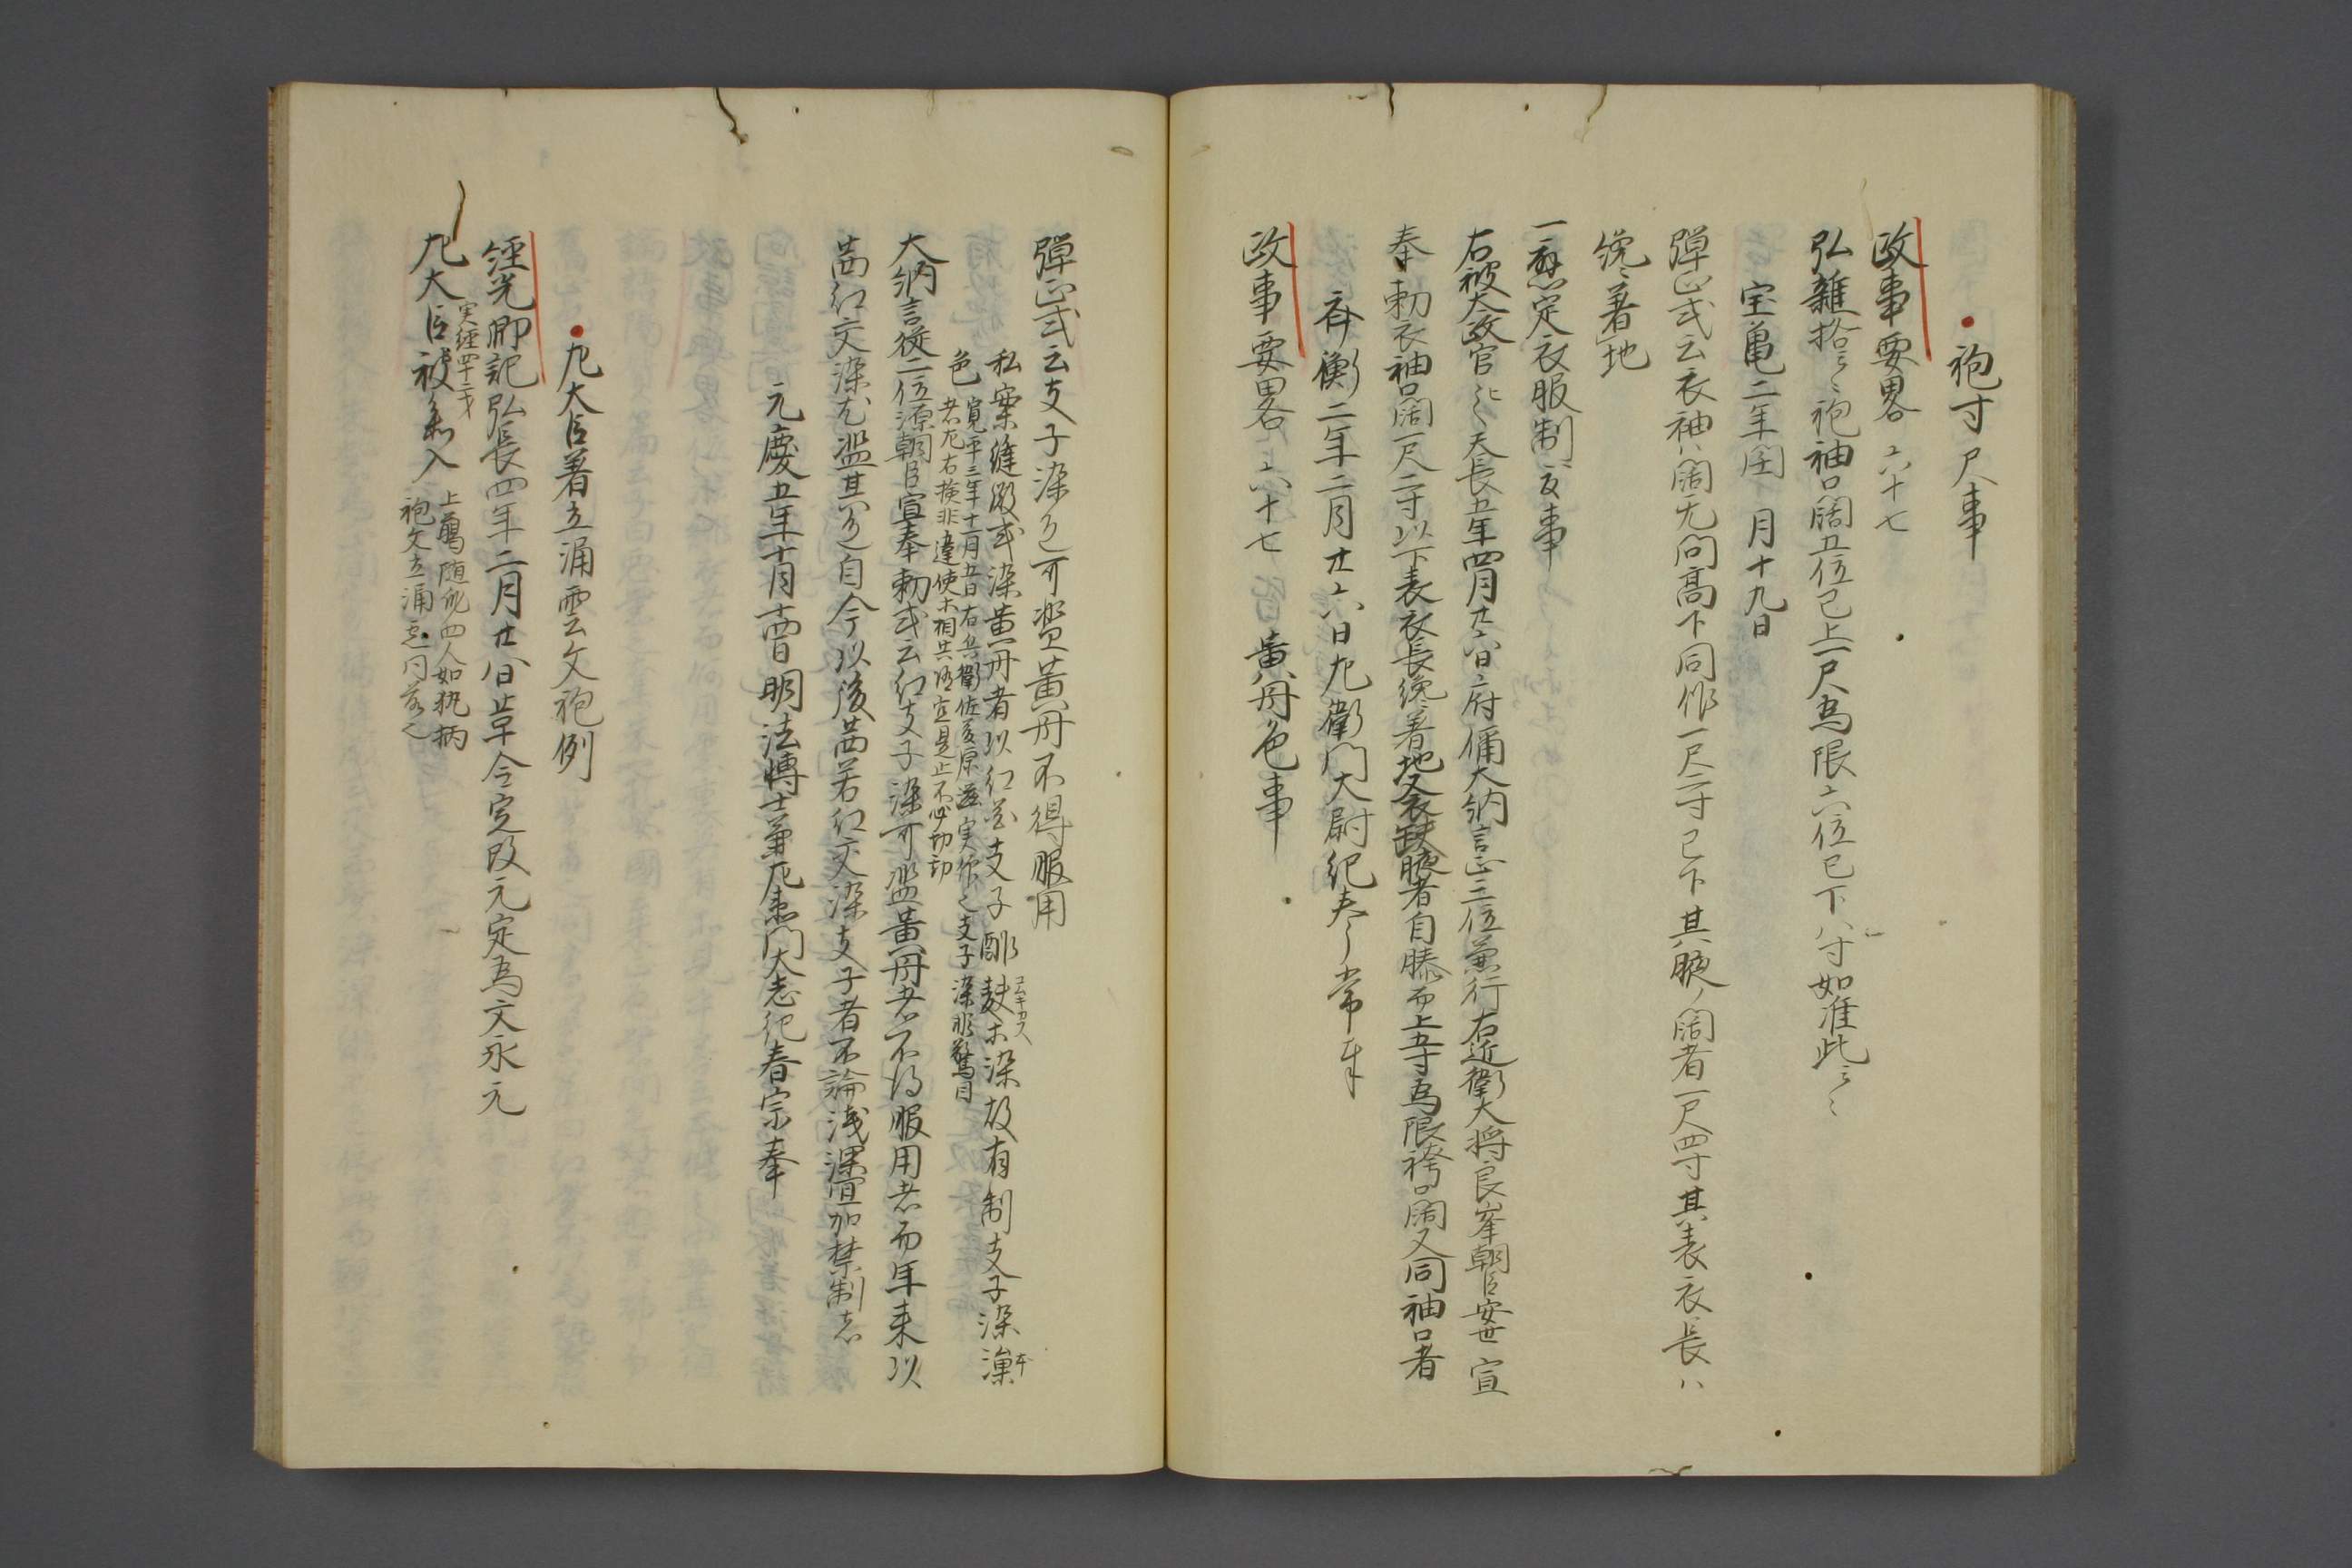 袍寸尺事
政事要畧六十七
弘雑格云袍袖口闊五位已上一尺為限六位已下八寸如准此云々
宝亀二年閏 月十九日
弾正式云衣袖ハ闊无問高下同作一尺二寸已下其腋ノ闊者一尺四寸其表衣長ハ
纔著地
一應定衣服制度事
右被太政官 天長五年四月廿六日 府偁大納言正三位兼行右近衛大将良峯朝臣安世宣
奉勅衣袖口闊一尺二寸以下表衣長纔著地 衣缺腋者自膝而上五寸為限袴口闊又同袖口者
斉衡二年二月廿六日左衛門大尉紀 常
政事要畧六十七 黄丹色事
弾正式云支子染色可濫黄丹不得服用
私案縫殿式染黄丹者以紅花支子酢麩木染故有制支子染深本
コムキカス
色 寛平三年十一月五日右兵衛佐 原 実作 支子染 驚目
者左右検非違使 相共 定是止不必切勘
大納言従二位源朝臣宣奉勅式云紅支子染可濫黄丹者不得服用者而年来以
茜紅交染尤濫其色自今以後茜若紅交染支子者不論浅深宜加禁制者
元慶五年十月十四日明法博士兼左衛門大志紀春宗奉
左大臣著立涌雲文袍例
経光卿記弘長四年二月廿八日 今定改元定為文永元
左大臣被参入
実経四十二才
上﨟随身四人如執柄
袍文立涌雲同著之